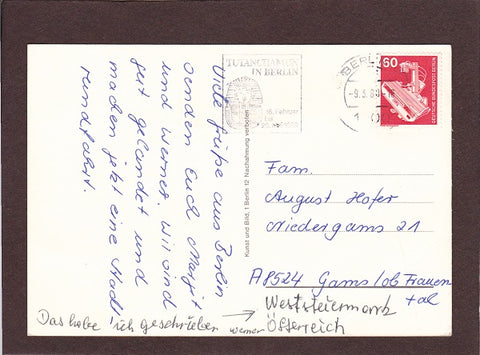 Viele Grüße aus Berlin
senden Euch Margit
und Werner. Wir sind
gut gelandet und
machen jetzt eine Stadt-
rundfahrt.
Das habe ich geschrieben
Werner
TUTANCHAMUN
IN BERLIN
16. Februar
BERLIN
-9.5.80
1
60
DEUTSCHE BUNDESPOST BERLIN
Kunst und Bild, 1 Berlin 12 Nachahmung verboten
Fam.
August Hofer
Niedergams 21
A 8524 Gams/ob Frauen
tal
Weststeiermark
Österreich